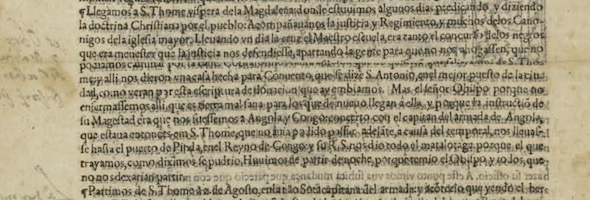 ¶Llegamos a S. Thome vispera de la Magdalena donde estuuimos algunos dias predicando, y diziendo
la doctrina Christiana por el pueblo: Acompañauannos la justicia y Regimiento, y muchos de los Cano-
nigos de la iglesia mayor. Lleuando vn dia la cruz el Maestro escuela, era tanto el concurso de los negros
que era menester que la justicia nos defendiesse, apartando la gente para que no nos ahogassen, que no
podiamos caminar por la calle. de S. Tho
me, y alli nos dieron vna casa hecha para Conuento, que se dize S. Antonio, en el mejor puesto de la ciu
dad, como veran por esta escritura de donacion que ay embiamos. Mas el señor Obispo porque no
enfermassemos alli, que es tierra mal sana para los que de nueuo llegan a ella, y porque la instructió de
su Magestad era que nos fuessemos a Angola y Congo: concerto con el capitan del armada de Angola,
que estaua entonces en S. Thome, que no auia podido passar adelãte, a causa del temporal, nos lleuas-
se hasta el puerto de Pinda, en el Reyno de Congo: y su R.S. nos dio todo el matalotage porque el que
trayamos, como diximos se pudrio. Huuimos de partir de noche, porque temio el Obispo, y todos, que
no nos dexarian partir.
¶Partimos de S. Thome a 2. de Agosto, en la nao Sota capitana del armada: y acotecio que yendo el her